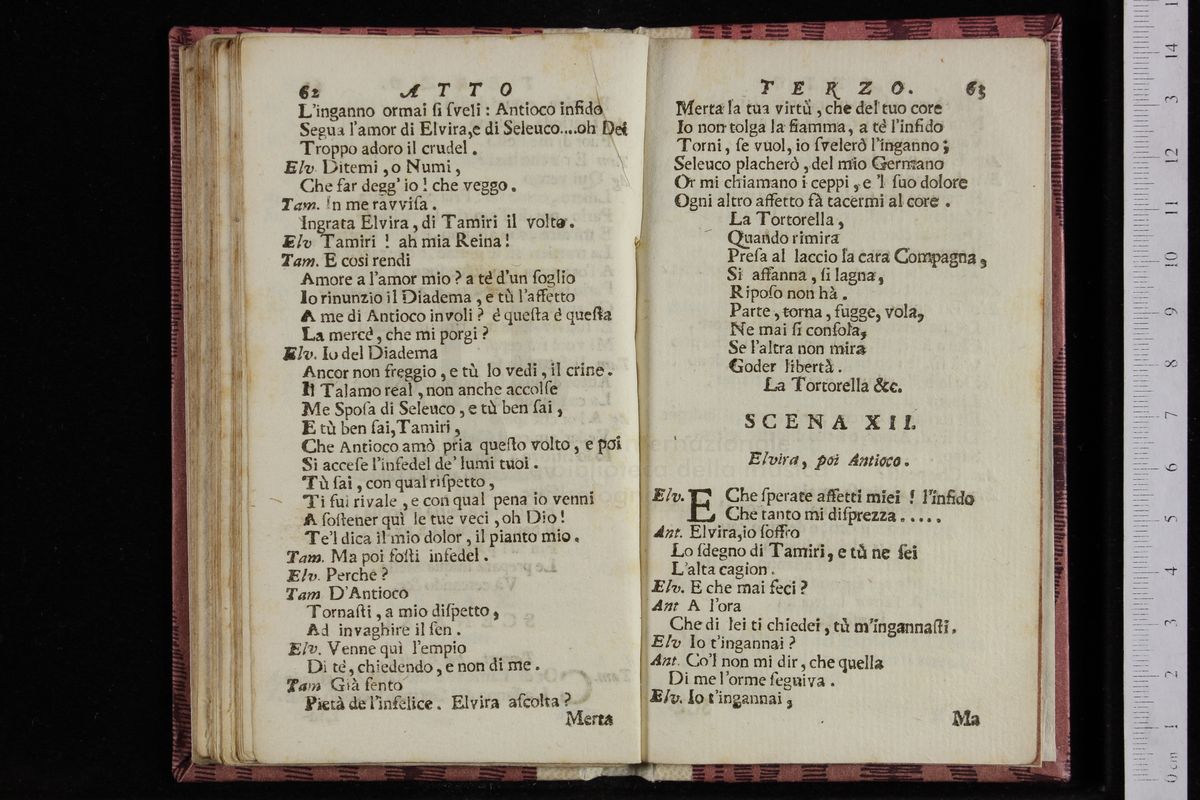 62 ATTO
L'inganno ormai ſi ſveli : Antioco infido
Segua l'amor di Elvira,e di Seleuco....oh Dei
Troppo adoro il crudel .
Elv Ditemi , o Numi ,
Che far degg' io ! che veggo .
Tam. In me ravviſa .
Ingrata Elvira , di Tamiri il volto .
Elv Tamiri ! ah mia Reina !
Tam. E così rendi
Amore a l'amor mio ? a tè d'un ſoglio
Io rinunzio il Diadema , e tù l'affetto
A me di Antioco involi ? è queſta è queſta
La mercè , che mi porgi ?
Elv. Io del Diadema
Ancor non freggio , e tù lo vedi , il crine .
Il Talamo real , non anche accolſe
Me Spoſa di Seleuco , e tù ben ſai ,
E tù ben ſai,Tamiri ,
Che Antioco amò pria queſto volto , e poi
Si acceſe l'infedel de' lumi tuoi .
Tù ſai , con qual riſpetto ,
Ti fui rivale , e con qual pena io venni
A ſoſtener quì le tue veci , oh Dio !
Te'l dica il mio dolor , il pianto mio .
Tam. Ma poi foſti infedel .
Elv. Perche ?
Tam D'Antioco
Tornaſti , a mio diſpetto ,
Ad invaghire il ſen .
Elv. Venne quì l'empio
Di tè , chiedendo , e non di me .
Tam Già ſento
Pietà de l'infelice . Elvira aſcolta ?
Merta
TERZO. 63
Merta la tua virtù , che del tuo core
Io non tolga la fiamma , a tè l'infido
Torni , ſe vuol, io ſvelerò l'inganno ;
Seleuco placherò , del mio Germano
Or mi chiamano i ceppi , e 'l ſuo dolore
Ogni altro affetto fà tacermi al core .
La Tortorella ,
Quando rimira
Preſa al laccio la cara Compagna ,
Si affanna , ſi lagna ,
Ripoſo non hà .
Parte , torna , fugge, vola,
Ne mai ſi conſola,
Se l'altra non mira
Goder libertà .
La Tortorella &c.
SCENA XII.
Elvira, poi Antioco .
Elv. E Che ſperate affetti miei ! l'infido
Che tanto mi diſprezza .....
Ant. Elvira,io ſoffro
Lo ſdegno di Tamiri, e tù ne ſei
L'alta cagion .
Elv. E che mai feci ?
Ant A l'ora
Che di lei ti chiedei , tù m'ingannaſti .
Elv Io t'ingannai ?
Ant. Co'l non mi dir , che quella
Di me l'orme ſeguiva .
Elv. Io t'ingannai ,
Ma